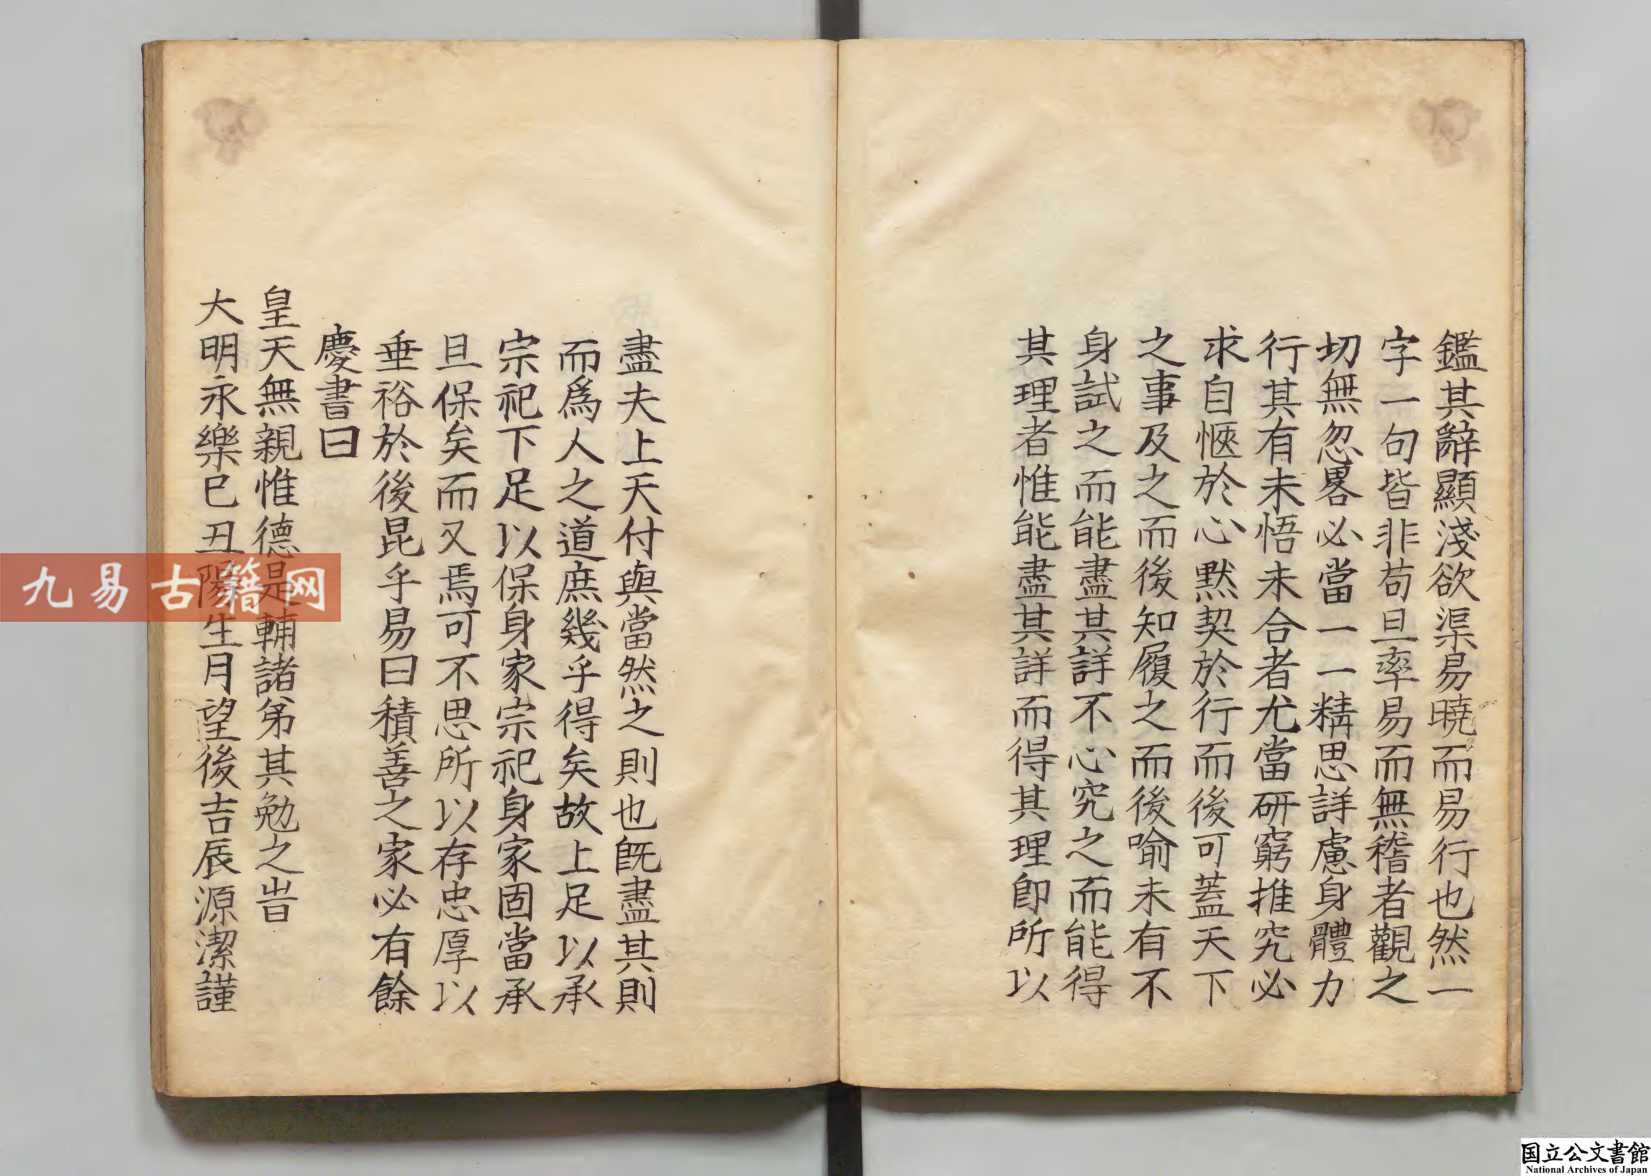 鑑其辭顯淺欲渠易曉而易行也然一
字一句皆非苟且率易而無稽者觀之
切無忽畧必當一一精思詳慮身體力
行其有未悟未合者尤當研窮推究必
求自愜於心黙契於行而後可蓋天下
之事及之而後知履之而後喻未有不
身試之而能盡其詳不心究之而能得
其理者惟能盡其詳而得其理即所以
盡夫上天付與當然之則也既盡其則
而爲人之道庶幾乎得矣故上足以承
宗祀下足以保身家宗祀身家固當承
且保矣而又焉可不思所以存忠厚以
垂裕於後昆乎易曰積善之家必有餘
慶書曰
皇天無親惟德是輔諸弟其勉之旹
大明永樂己丑陽生月望後吉辰源潔謹
九易古籍网
国立公文書館
National Archives of Japan